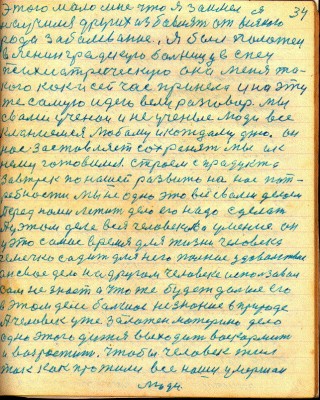 этого мало мне что я занялся
34
научил других избавит от всякого
рода заболевание, я был положен
в Ленинградскую больницу в спец
психиатрическую она меня та-
кого как и сейчас приняла и на эту
же самую идею вела разговор. мы
с вами ученои и не ученые люди все
кланяемся любому и каждому дню. он
нас заставляет сохранят мы их
нами готовились. строем с продукта
завтрак по нашей развито на нас пот-
ребности. мы не одно это всё с вами делаем
перед нами летит дело его надо сделат
Ну этом деле вся человека умение. он
у это самое время для жизни человека
семечко садит для него полное удовольствие
а не свое дело и о другом человеке использовал
сам не знает а что же будет далше его
в этом деле болное незнание в природе
А человек уже захотел материно дело
одно этого дитя выходит выкормит
и возрастит. Чтобы человек жил
так как прожили все наши умершии
люди.